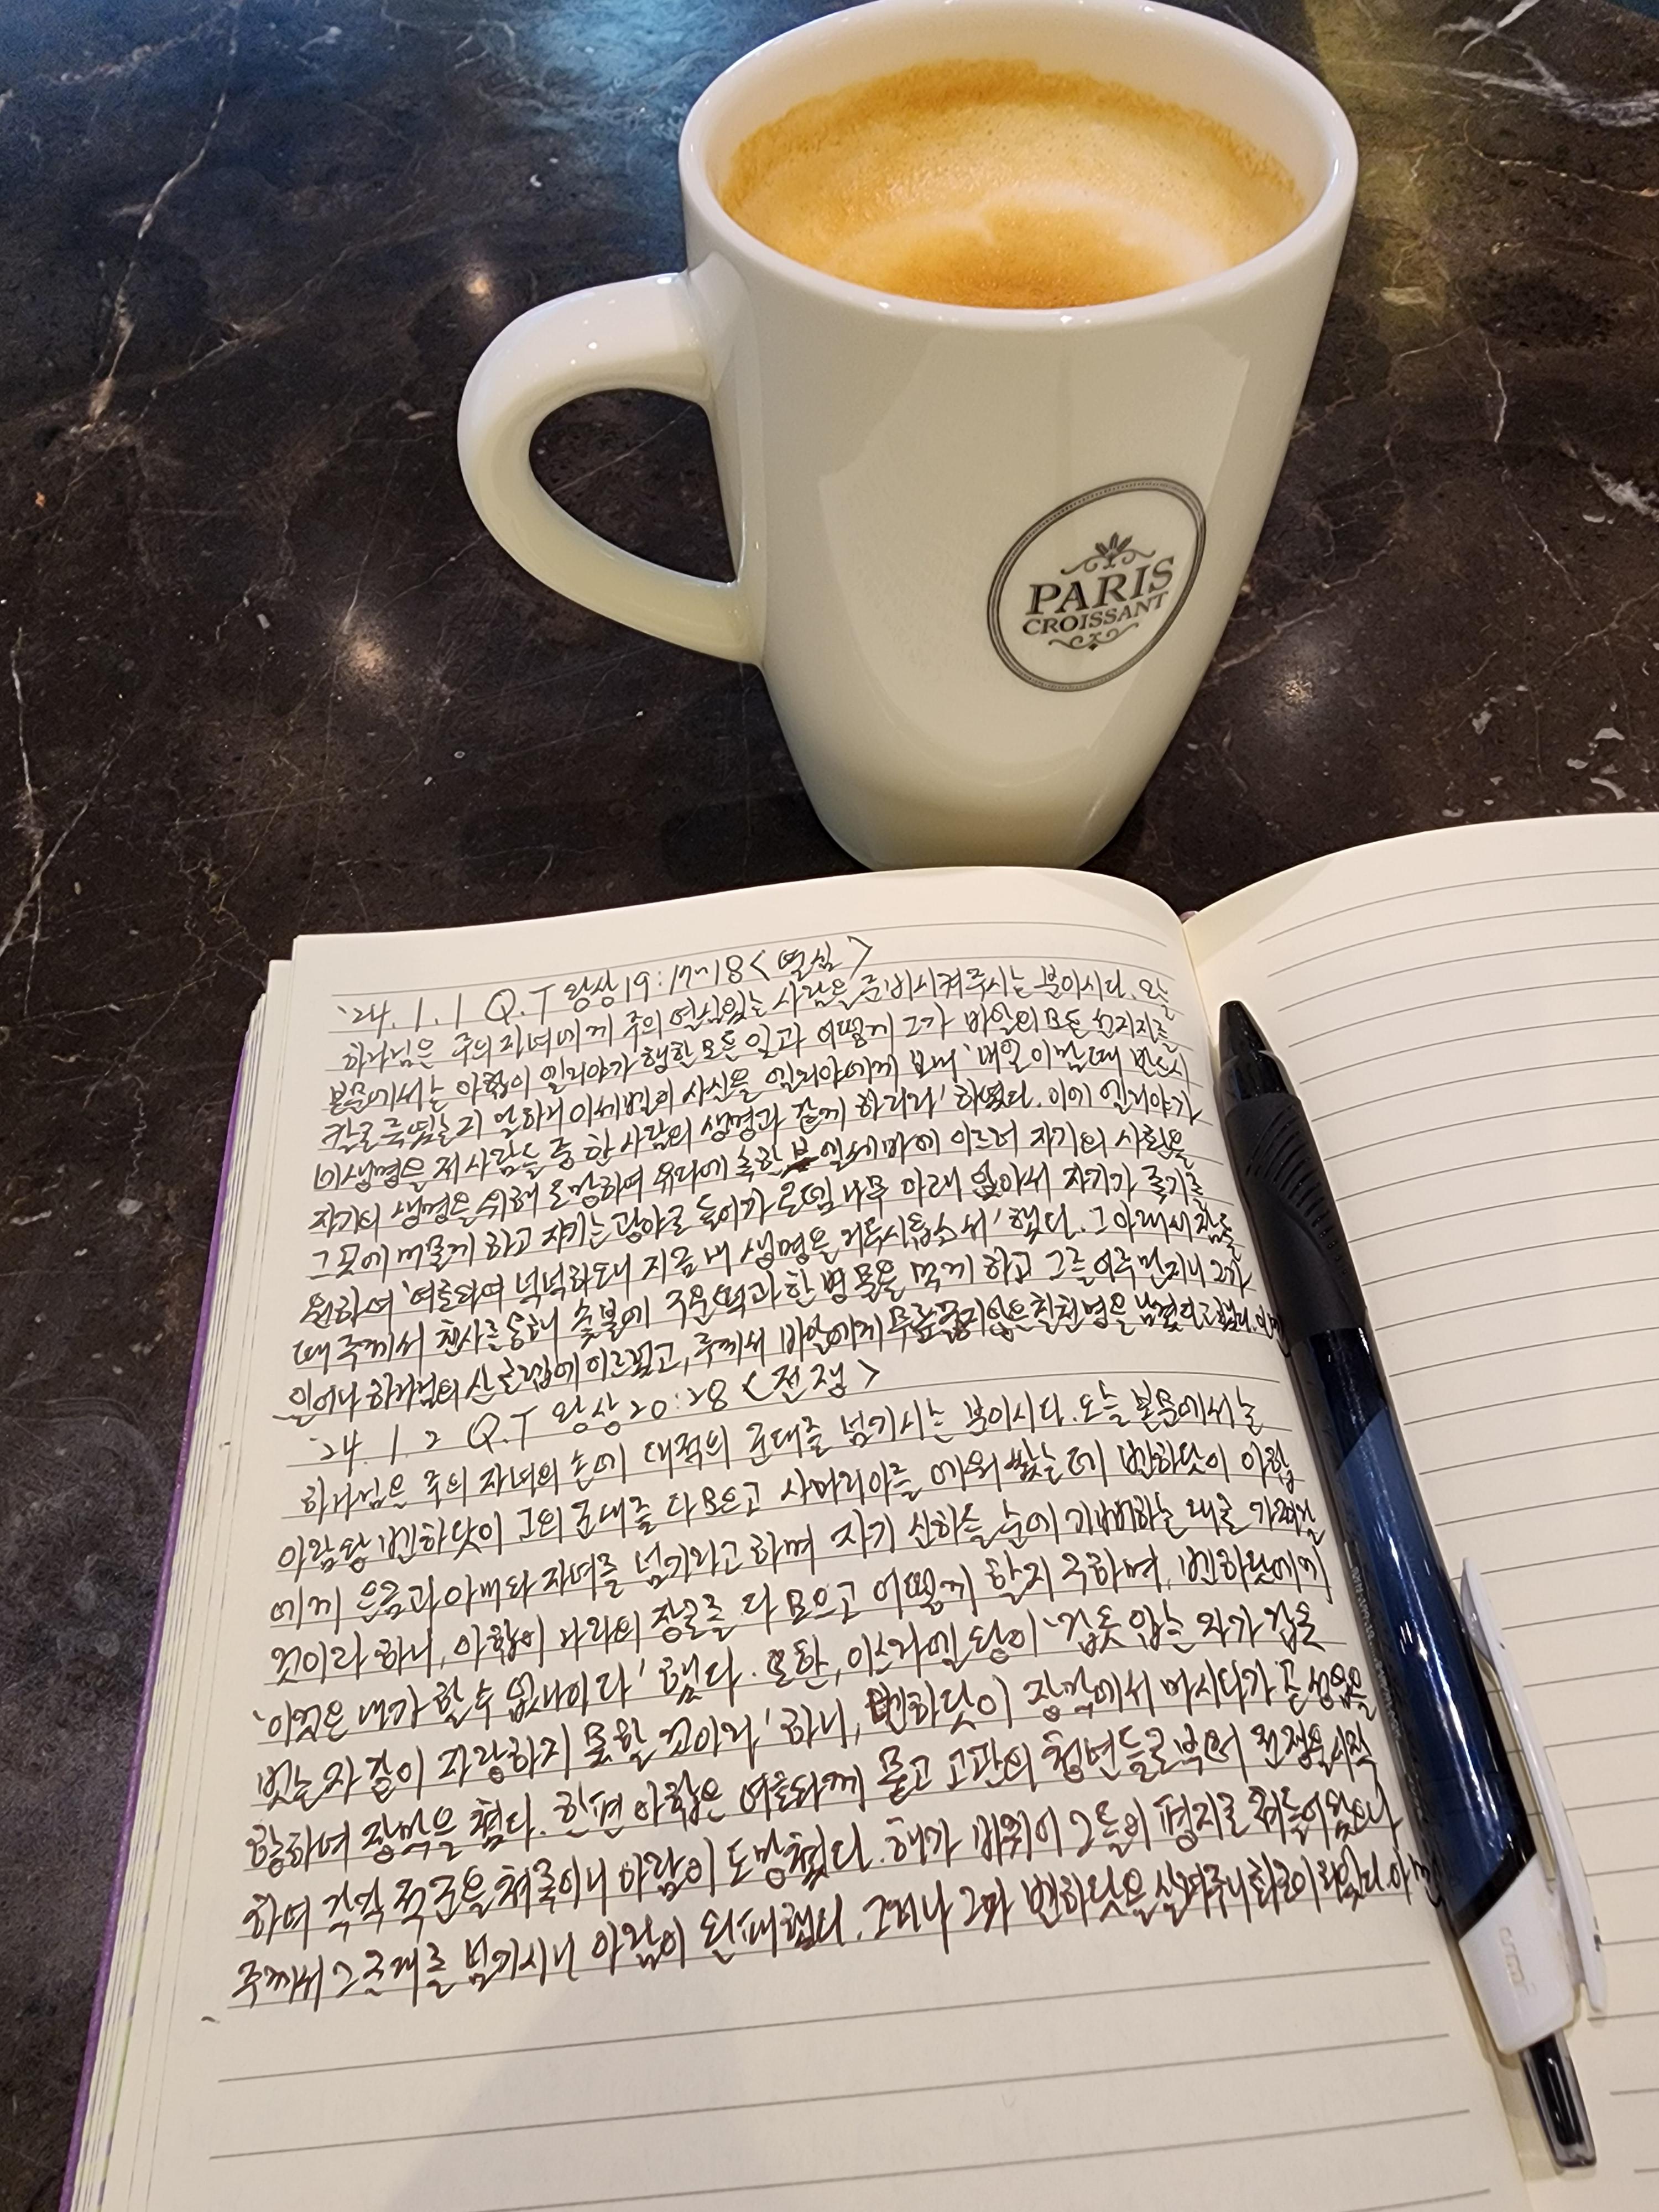 PARIS
CROISSANT
'24. 1. 1 Q.T 왕상 19:17~18 <열심>
하나님은 주의 자녀에게 주의 열심있는 사람을 준비시켜주시는 분이시다. 오늘
본문에서는 아합이 일리야가 행한 모든 일과 어떻게 그가 바알의 모든 선지자를
칼로 죽였는지 말하니 이세벨의 사신을 엘리야에게 보내 '내일 이맘때 반드시
네 생명을 저 사람들 중 한 사람의 생명과 같게 하리라' 하였다. 이에 엘리야가
자기의 생명을 위해 도망하여 유다에 속한 브엘세바에 이르러 자기의 사환을
그 곳에 머물게 하고 자기는 광야로 들어가 로뎀나무 아래 앉아서 자기가 죽기를
원하여 '여호와여 넉넉하오니 지금 내 생명을 거두시옵소서' 했다. 그 아래서 잠들
때 주께서 천사를 통해 숯불에 구운 떡과 한 병 물을 먹게 하고 그를 어루만지니 그가
일어나 하나님의 산 호렙에 이르렀고, 주께서 바알에게 무릎꿇지않은 칠천명을 남겼다고 했다.
'24. 1. 2 Q.T 왕상 20:28 <전쟁>
하나님은 주의 자녀의 손에 대적의 군대를 넘기시는 분이시다. 오늘 본문에서는
아람왕 벤하닷이 그의 군대를 다 모으고 사마리아를 에워쌌는데 벤하닷이 아합
에게 은금과 아내와 자녀를 넘기라고 하며 자기 신하들 눈에 기뻐하는 대로 가져갈
것이라 하니, 아합이 나라의 장로를 다 모으고 어떻게 할지 구하며, 벤하닷에게
'이것은 내가 할 수 없나이다' 했다. 또한, 이스라엘 왕이 '갑옷 입는 자가 갑옷
벗는 자 같이 자랑하지 못할 것이라' 하니, 벤하닷이 장막에서 마시다가 곧 성읍을
향하여 장막을 쳤다. 한편 아합은 여호와께 묻고 고관의 청년들로부터 전쟁을 시작
하여 각각 적군을 쳐죽이니 아람이 도망쳤다. 해가 바뀌어 그들이 평지로 쳐들어왔으나
주께서 그 군대를 넘기시니 아람이 완패했다. 그러나 그가 벤하닷을 살려주니 화근이 되었다.